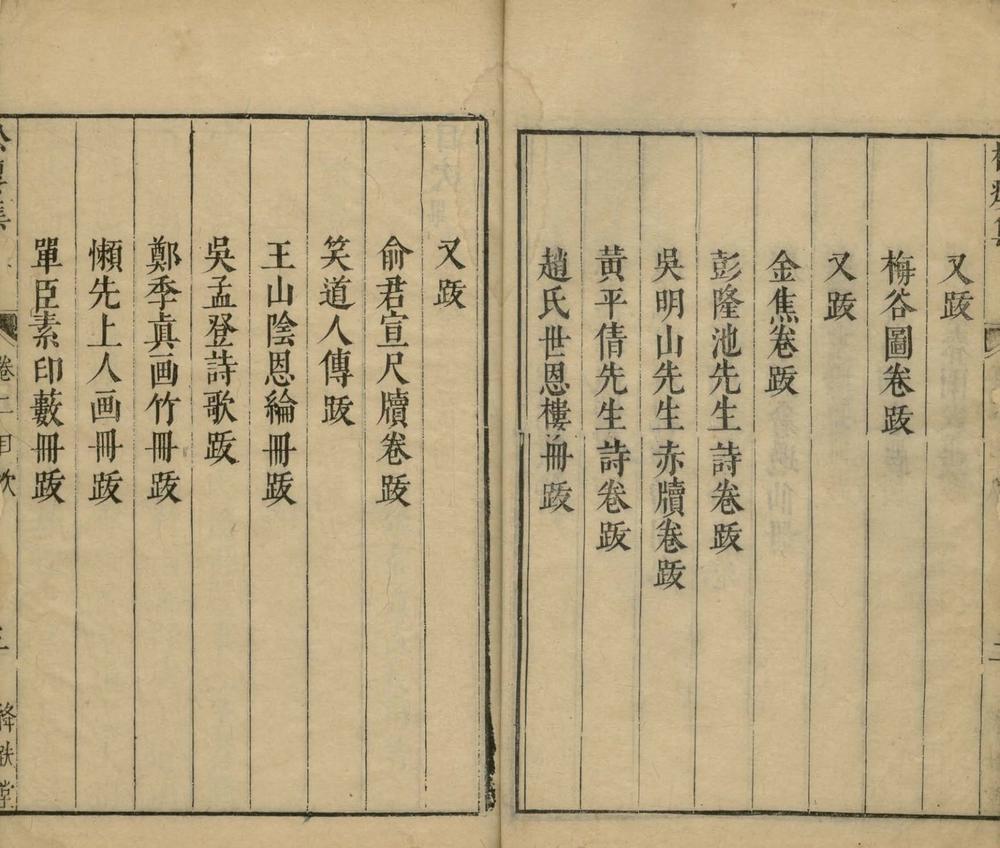 又跋
梅谷圖卷跋
又跋
金焦卷跋
彭隆池先生詩卷跋
吳明山先生赤牘卷跋
黃平倩先生詩卷跋
趙氏世恩樓冊跋
又跋
俞君宣尺牘卷跋
笑道人傳跋
王山陰恩綸冊跋
吳孟登詩歌跋
鄭季真画竹冊跋
懶先上人画冊跋
單臣素印藪冊跋
卷二目次